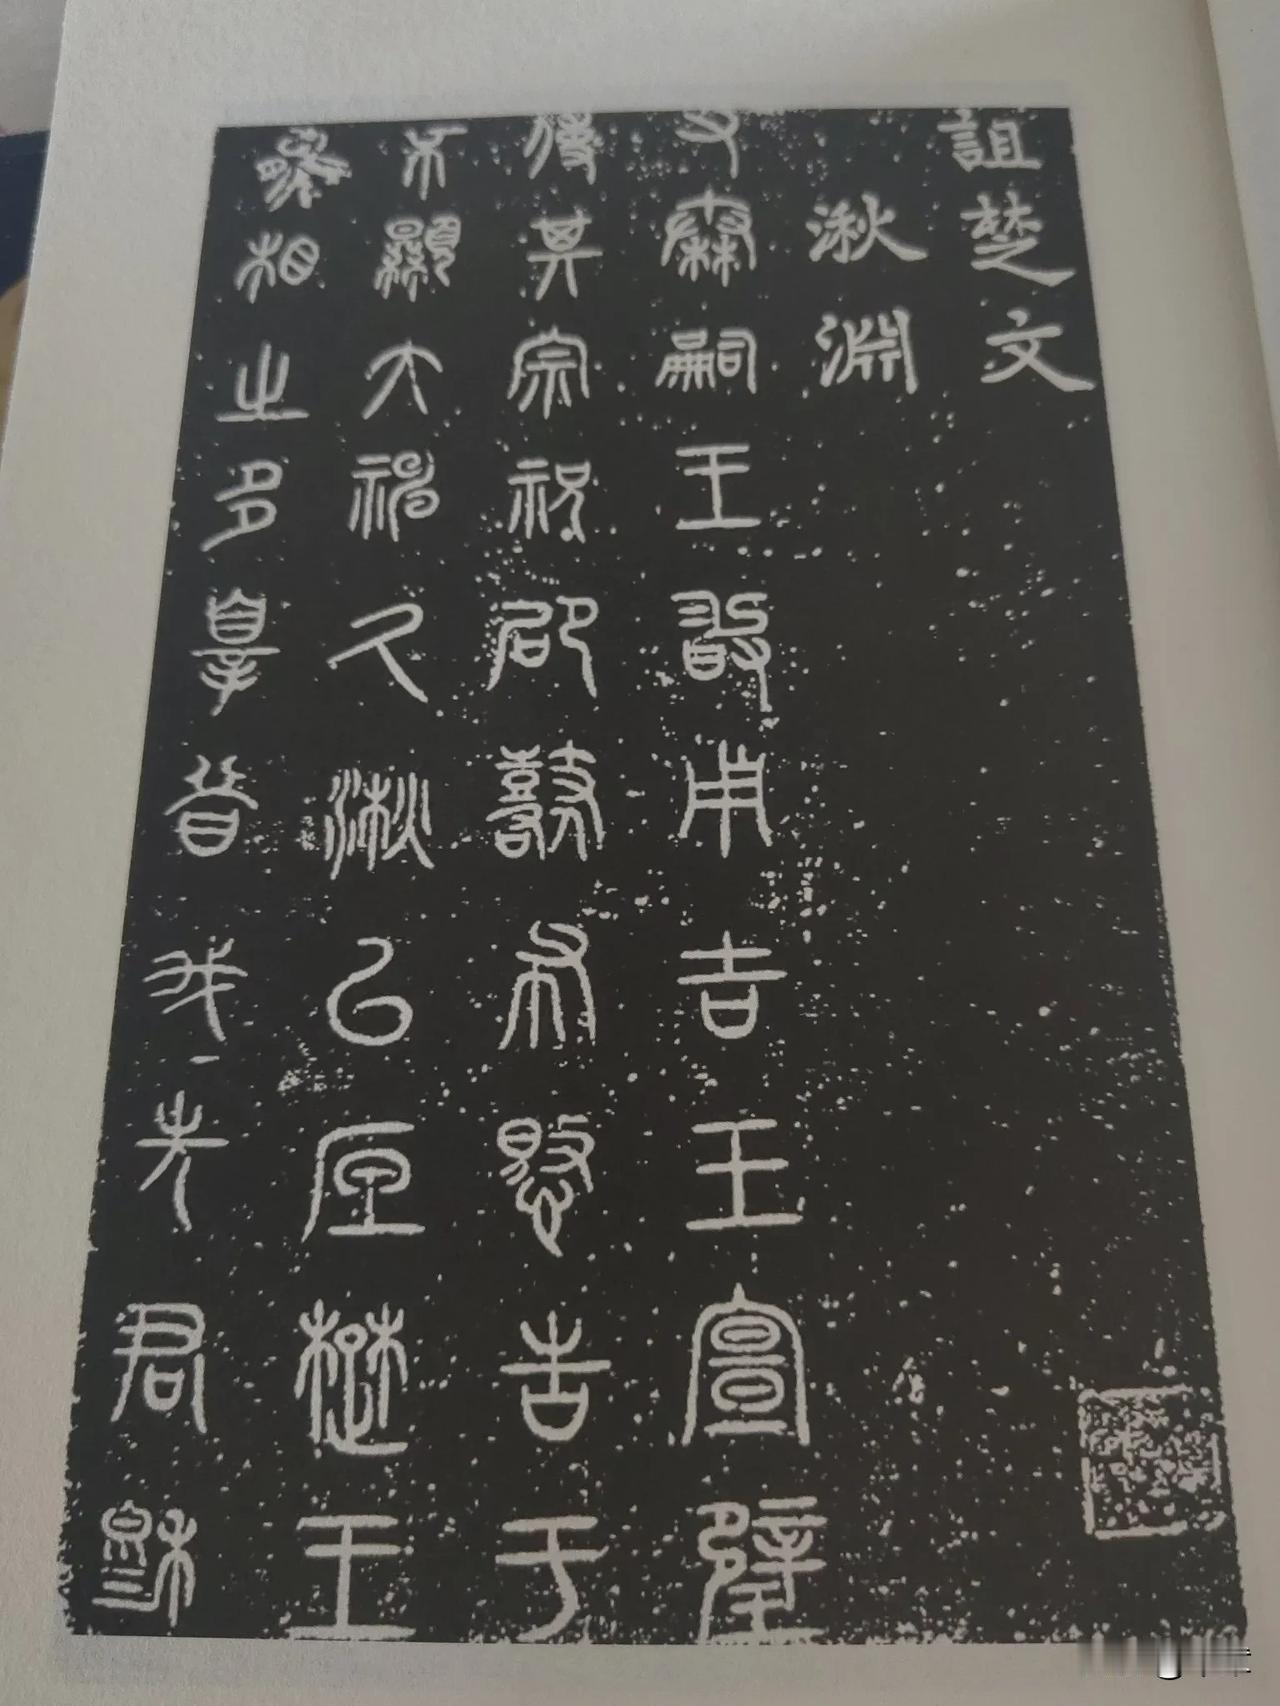 詛楚文
湫淵
又秦嗣王敢用吉玉宣璧
使其宗祝邵鼛布愍告于
不顯大神久湫以底楚王
熊相之多辠昔我先君穆